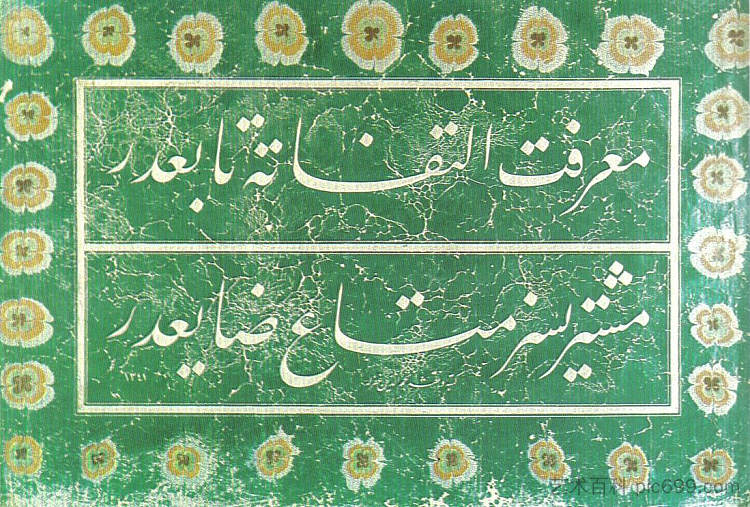 معرفت التفاته تابعدر
مشتریسز متاع ضایعدر
艺术百科 pic699.com